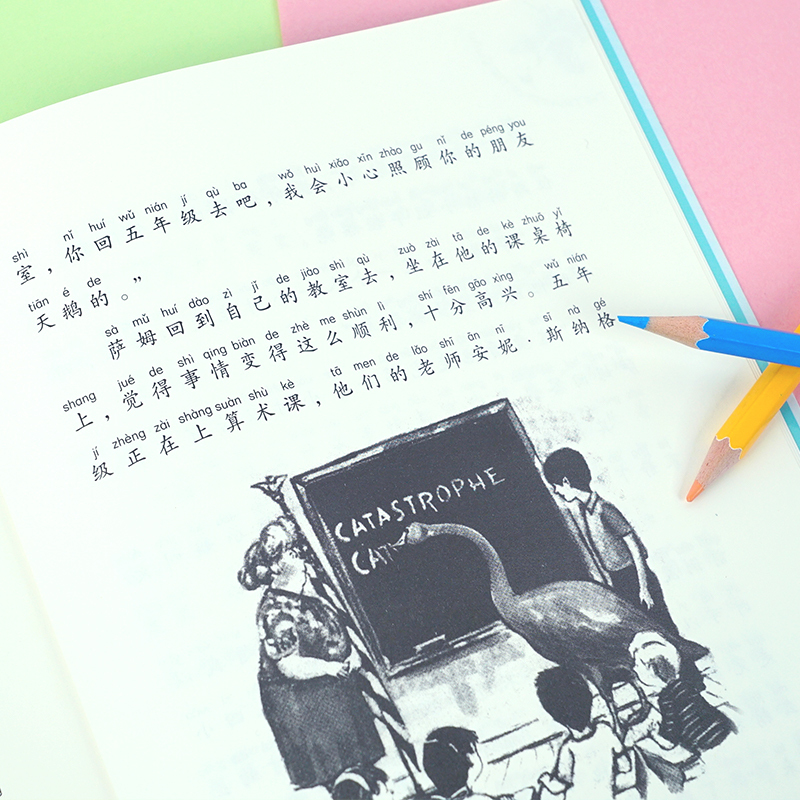 shì nǐ huí wǔ nián jí qù ba wǒ huì xiǎo xīn zhào gu nǐ de péng you
室，你回五年级去吧，我会小心照顾你的朋友
tiān é de
天鹅的。”
sà mǔ huí dào zì jǐ de jiào shì qù zuò zài tā de kè zhuō yǐ
萨姆回到自己的教室去，坐在他的课桌椅
shang jué de shì qing biàn de zhè me shùn lì shí fēn gāo xìng wǔ nián
上，觉得事情变得这么顺利，十分高兴。五年
jí zhèng zài shàng suàn shù kè tā men de lǎo shī ān nī sī nà gé
级正在上算术课，他们的老师安妮·斯纳格
CATASTROPHE
CAT